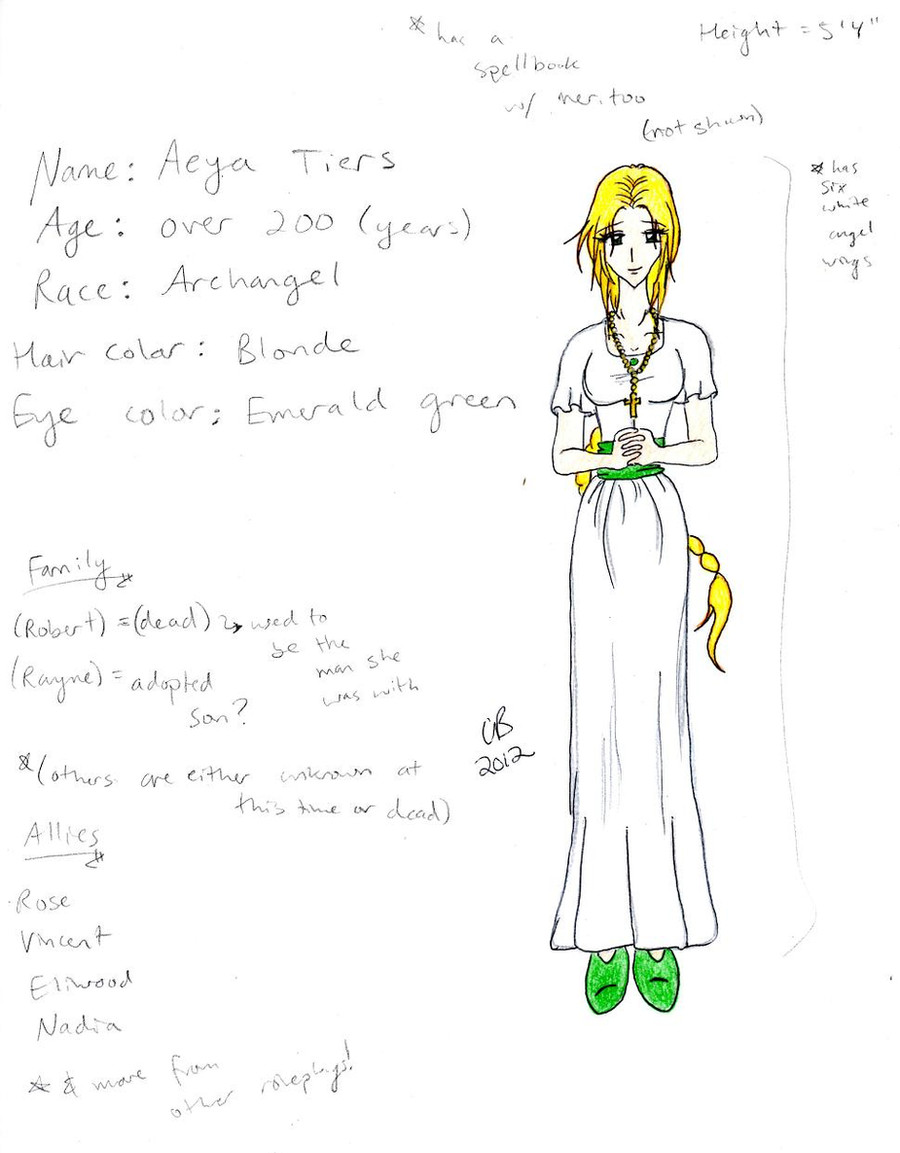 * has a
spellbook
w/ her. too
(not shown)
Height = 5'4"
Name: Aeya Tiers
Age: over 200 (years)
Race: Archangel
Hair color: Blonde
Eye color: Emerald green
* has
six
white
angel
wings
Family
(Robert) = (dead) → used to
be the
man she
was with
(Rayne) = adopted
son?
*(others are either unknown at
this time or dead)
Allies
Rose
Vincent
Eliwood
Nadia
* & more from
other roleplays!
2012